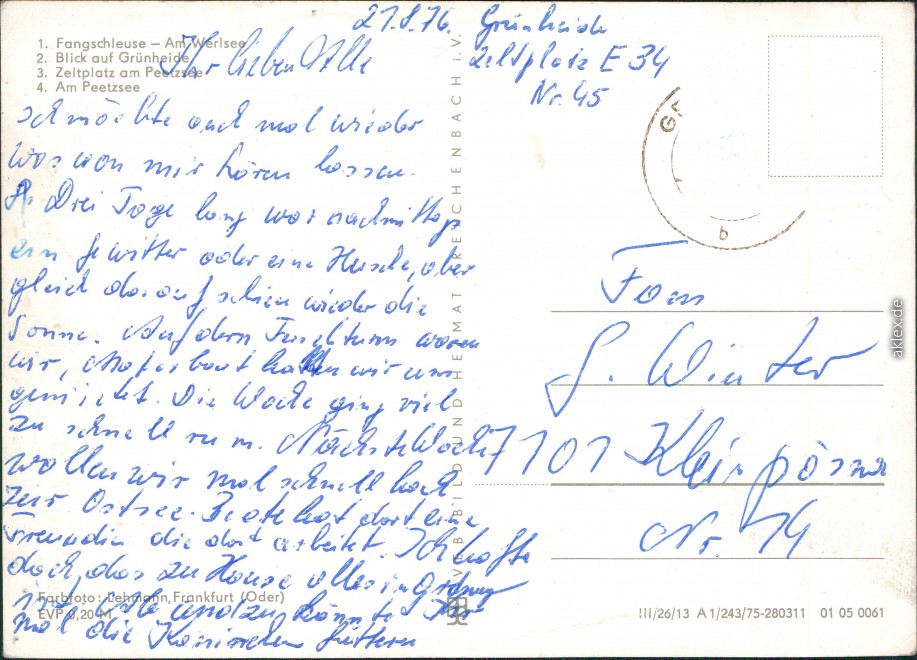 1. Fangschleuse – Am Werlsee
2. Blick auf Grünheide
3. Zeltplatz am Peetzsee
4. Am Peetzsee
21.8.76. Grünheide
Zeltplatz E 34
Nr. 45
Ihr lieben Alle
ich möchte auch mal wieder
was von mir hören lassen.
Drei Tage lang war nachmittags
ein Gewitter oder eine Husche, aber
gleich darauf schien wieder die
Sonne. Auf dem Turm waren
wir, Motorboot haben wir uns
gemietet. Die Woche ging viel
zu schnell rum. Nächste Woche
wollen wir mal schnell hoch
zur Ostsee. Beate hat dort eine
Freundin die dort arbeitet. Ich hoffe
doch, das zu Hause alles in Ordnung
ist. Ab und zu könnte Ihr
mal die Kaninchen füttern
Fam
S. Winter
7101 Kleinpösna
Nr. 14
VERLAG BILD UND HEIMAT REICHENBACH i.V.
G
b
Farbfoto: Lehmann, Frankfurt (Oder)
EVP 0,20 M
III/26/13 A 1/243/75-280311 01 05 0061
aklex.de